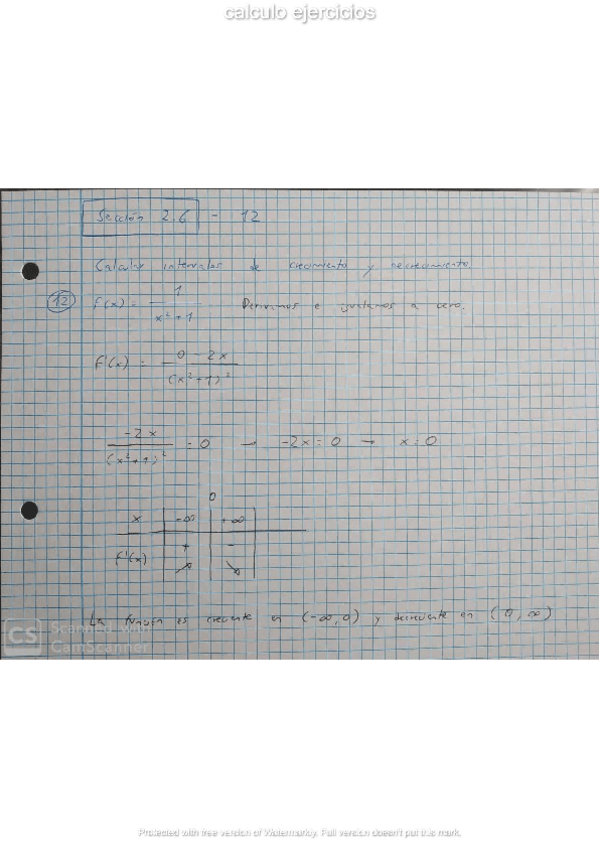 calculo ejercicios
Sección 2.6 - 12
Calcular intervalos de crecimiento y decrecimiento
12 f(x) = 1 / (x² + 1) Derivamos e igualamos a cero.
f'(x) = (0 - 2x) / (x² + 1)²
-2x / (x² + 1)² = 0 → -2x = 0 → x = 0
0
x | -∞ | +∞ |
f'(x) | + | - |
↗ ↘
La función es creciente en (-∞, 0) y decreciente en (0, ∞)
CS Scanned with
CamScanner
Protected with free version of Watermarkly. Full version doesn't put this mark.